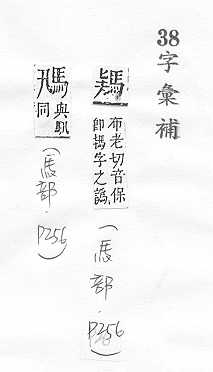 38字彙補
布老切音保
即字之譌
(馬部.P256)
與
同
(馬部.P256)